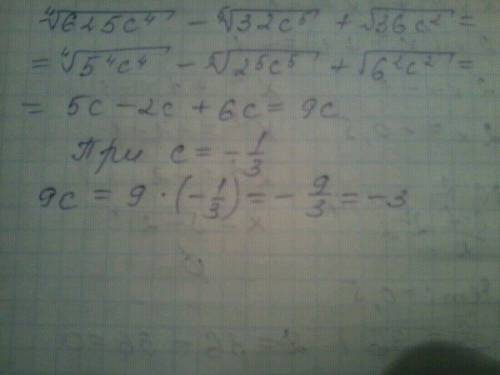 ⁴√625c⁴ - ⁵√32c⁵ + √36c² =
= ⁴√5⁴c⁴ - ⁵√2⁵c⁵ + √6²c² =
= 5c - 2c + 6c = 9c
При c = -1/3
9c = 9 · (-1/3) = -9/3 = -3